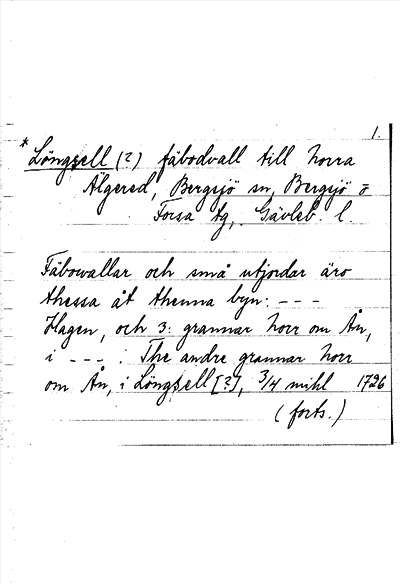 1.
*Löngsell (?) fäbodvall till Norra
Älgered, Bergsjö sn, Bergsjö o
Forsa tg, Gävleb. l.
Fäbowallar och små utjordar äro
thessa åt thenna byn: ---
Hagen, och 3: grannar norr om Ån,
i ---. The andre grannar norr
om Ån, i Löngsell [?], 3/4 mihl 1726
(forts.)